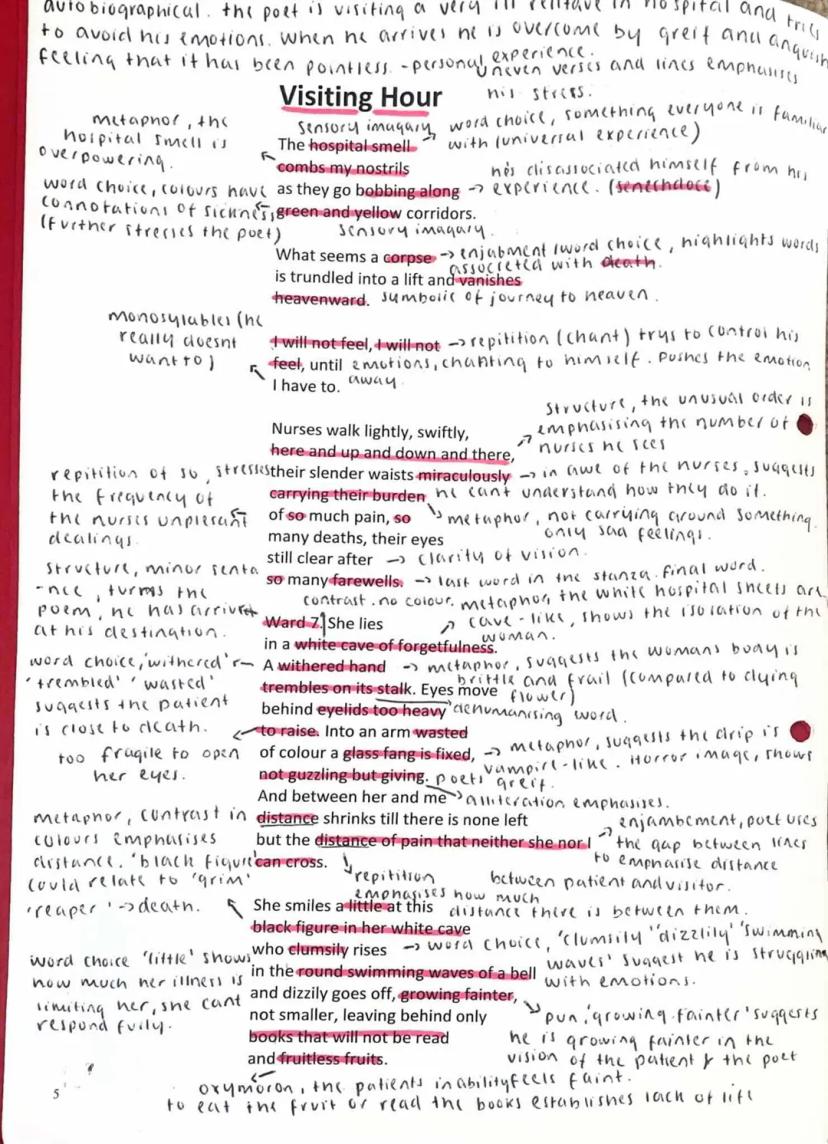 autobiographical. the poet is visiting a very ill relitave in hospital and tries
to avoid his emotions. when he arrives he is overcome by greif and anguish
feeling that it has been pointless. -personal experience.
uneven verses and lines emphasises
his stress.
Visiting Hour
metaphor, the
hospital smell is
overpowering.
sensory imagary
word choice, something everyone is familiar
with (universal experience)
The hospital smell
combs my nostrils
as they go bobbing along
green and yellow corridors.
he's disassociated himself from his
experience. (senechdoce)
word choice, colours have
connotations of sickness
(further stresses the poet)
sensory imagary.
What seems a corpse
is trundled into a lift and vanishes
heavenward.
→ enjabment /word choice, highlights words
associeted with death.
symbolic of journey to heaven.
monosylables (he
really doesnt
want to)
I will not feel, I will not
feel, until
I have to.
→ repitition (chant) trys to control his
emotions, chanting to himself. pushes the emotion
away.
Nurses walk lightly, swiftly,
here and up and down and there,
their slender waists miraculously
carrying their burden
of so much pain, so
many deaths, their eyes
still clear after
so many farewells.
structure, the unusual order is
emphasising the number of
nurses he sees
→ in awe of the nurses, suggests
he cant understand how they do it.
metaphor, not carrying around something.
only sad feelings.
→ clarity of vision.
→ last word in the stanza. final word.
repitition of so, stresses
the frequency of
the nurses unplesant
dealings.
structure, minor senta
-nce, turns the
poem, he has arrived
at his destination.
contrast. no colour. metaphor, the white hospital sheets are
cave-like, shows the isolation of the
woman.
Ward 7. She lies
in a white cave of forgetfulness.
A withered hand
trembles on its stalk. Eyes move
behind eyelids too heavy
to raise. Into an arm wasted
of colour a glass fang is fixed,
not guzzling but giving.
And between her and me
distance shrinks till there is none left
but the distance of pain that neither she nor I
can cross.
→ metaphor, suggests the womans body is
brittle and frail (compared to dying
flower)
dehumanising word.
→ metaphor, suggests the drip is
vampire-like. Horror image, shows
poets greif.
alliteration emphasises.
enjambement, poet uses
the gap between lines
to emphasise distance
between patient and visitor.
repitition
emphasises how much
distance there is between them.
word choice, 'withered'
'trembled' 'wasted'
suggests the patient
is close to death.
too fragile to open
her eyes.
metaphor, contrast in
colours emphasises
distance. 'black figure'
could relate to 'grim'
'reaper' → death.
She smiles a little at this
black figure in her white cave
who clumsily rises
in the round swimming waves of a bell
and dizzily goes off, growing fainter,
not smaller, leaving behind only
books that will not be read
and fruitless fruits.
→ word choice, 'clumsily' 'dizzlily' 'swimming
waves' suggest he is struggling
with emotions.
pun, 'growing fainter' suggests
he is growing fainter in the
vision of the patient & the poet
feels faint.
word choice 'little' shows
how much her illness is
limiting her, she cant
respond fully.
oxymoron, the patients inability
to eat the fruit or read the books establishes lack of life
5